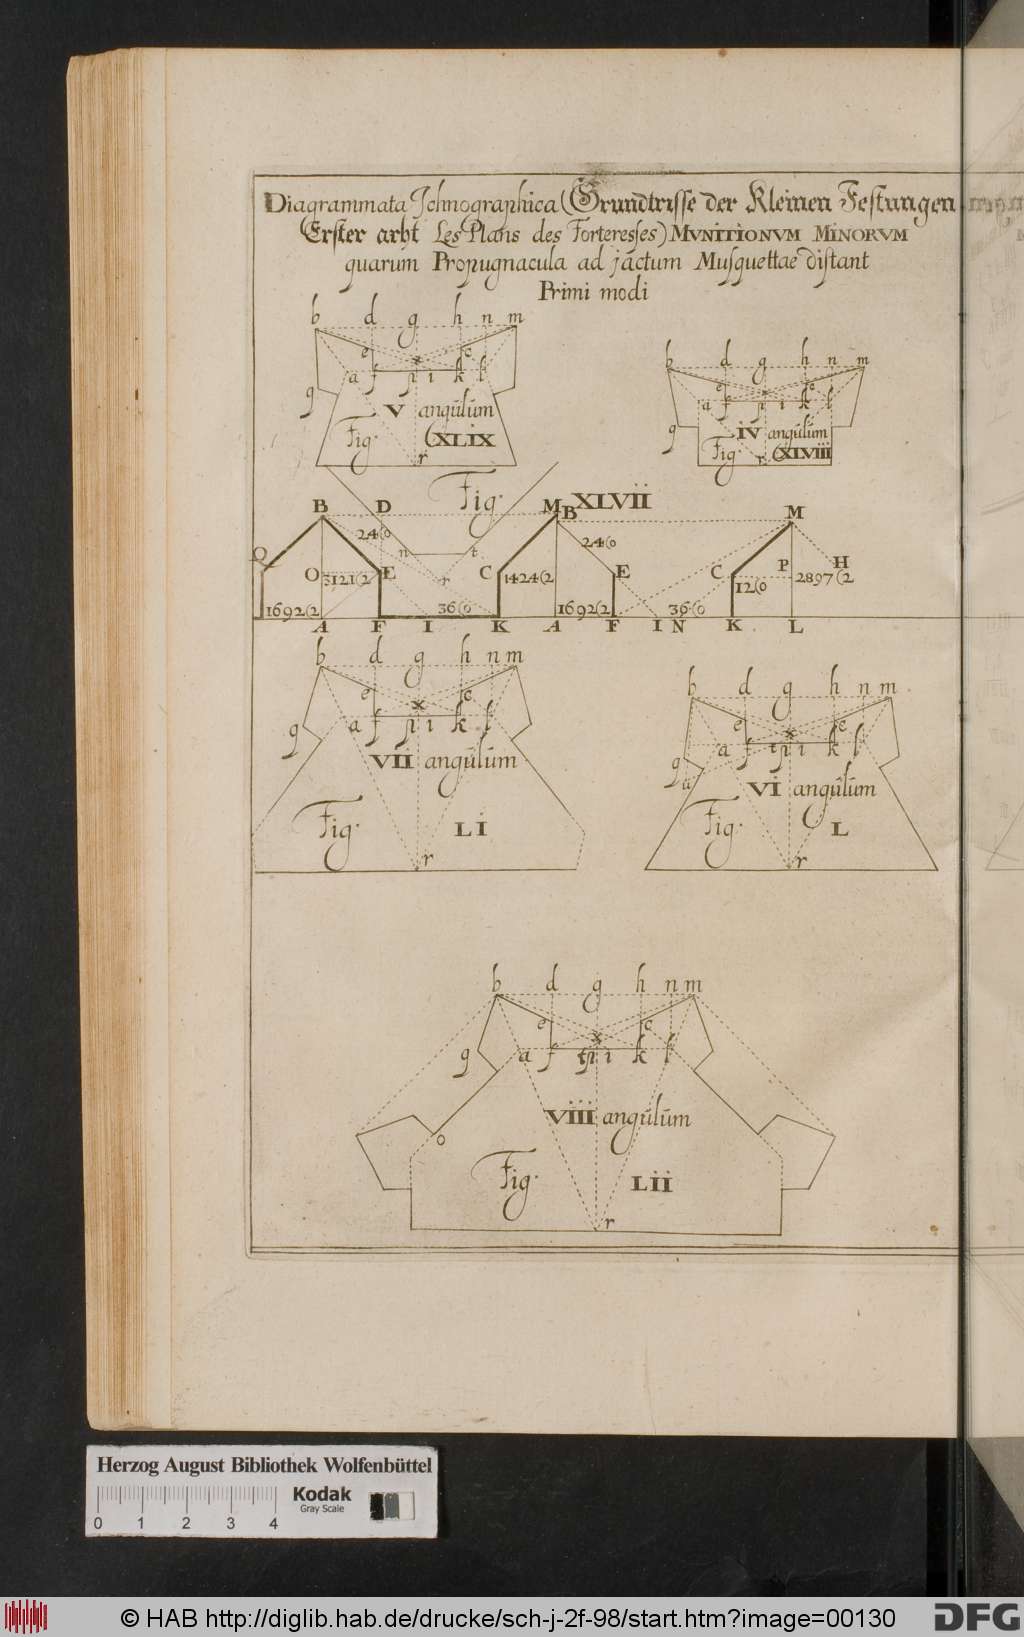 Diagrammata Ichnographica (Grundtrisse der Kleinen Festungen
Erster arht Les Plans des Forteresses) MVNITIONVM MINORVM
quarum Propugnacula ad jactum Musquettae distant
Primi modi
b d g h n m
e x c
a f p i k l
q
V angulum
Fig. XLIX
r
b d g h n m
e c
a f p i k l
q
IV angulum
Fig. XLVIII
r
Fig. XLVII
B D M B M
24(0 24(0
Q n t
O 3121(2 E r C 1424(2 E C P H
2897(2
12(0
1692(2 36(0 1692(2 36(0
A F I K A F I N K L
b d g h n m
e x c
a f p i k l
q
VII angulum
Fig. LI
r
b d g h n m
e x c
a f t p i k l
q
u
VI angulum
Fig. L
r
b d g h n m
e x c
q a f t p i k l
VIII angulum
o
Fig. LII
r
Herzog August Bibliothek Wolfenbüttel
Kodak
Gray Scale
0 1 2 3 4
© HAB http://diglib.hab.de/drucke/sch-j-2f-98/start.htm?image=00130
DFG